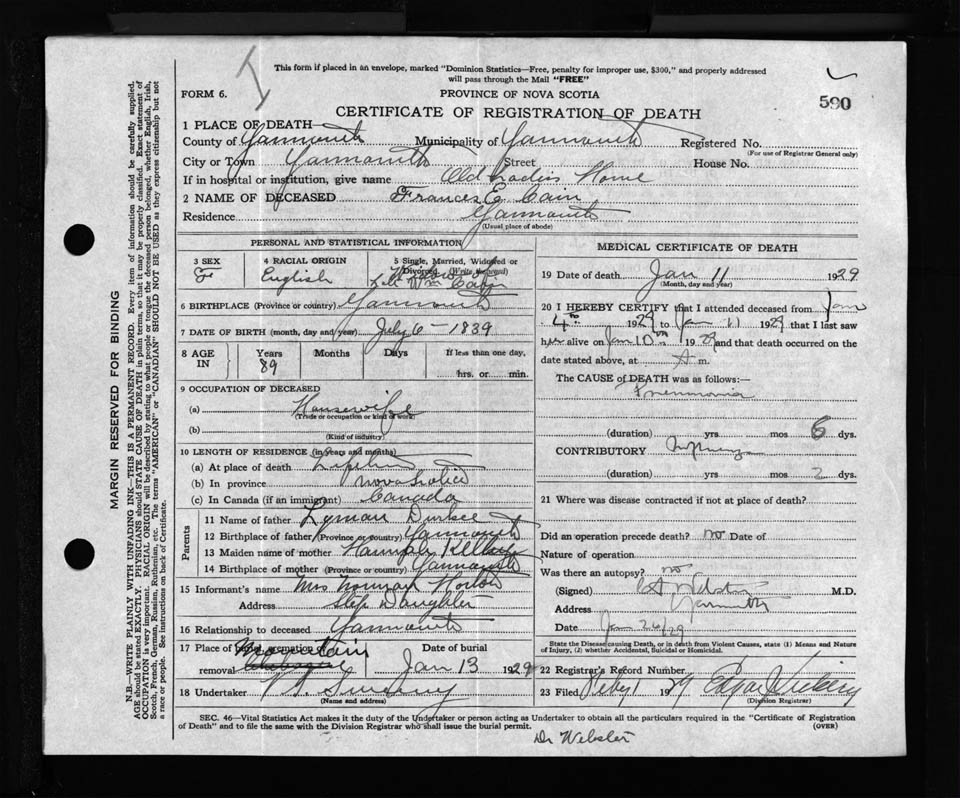 This form if placed in an envelope, marked "Dominion Statistics—Free, penalty for improper use, $300," and properly addressed
will pass through the Mail "FREE"
590
FORM 6.
PROVINCE OF NOVA SCOTIA
CERTIFICATE OF REGISTRATION OF DEATH
1 PLACE OF DEATH—
County of Yarmouth Municipality of Yarmouth Registered No.
(For use of Registrar General only)
City or Town Yarmouth Street House No.
If in hospital or institution, give name Old Ladies Home
2 NAME OF DECEASED Frances E. Cain
Residence Yarmouth
(Usual place of abode)
PERSONAL AND STATISTICAL INFORMATION
3 SEX 4 RACIAL ORIGIN 5 Single, Married, Widowed or
Divorced (Write the word)
F English Widow of
Late Wm Cain
6 BIRTHPLACE (Province or country) Yarmouth
7 DATE OF BIRTH (month, day and year) July 6 - 1839
8 AGE IN Years Months Days If less than one day,
89 hrs. or min.
9 OCCUPATION OF DECEASED
(a) Housewife
(Trade or occupation or kind of work)
(b)
(Kind of industry)
10 LENGTH OF RESIDENCE (in years and months)
(a) At place of death Lifetime
(b) In province Nova Scotia
(c) In Canada (if an immigrant) Canada
Parents
11 Name of father Lyman Durkee
12 Birthplace of father (Province or country) Yarmouth
13 Maiden name of mother Hannah
14 Birthplace of mother (Province or country) Yarmouth
15 Informant's name Mrs Norman Horton
Address Step Daughter
16 Relationship to deceased Yarmouth
17 Place of burial, cremation or removal Mountain Date of burial Jan 13 1929
18 Undertaker Sweeny
(Name and address)
MEDICAL CERTIFICATE OF DEATH
19 Date of death Jan 11 1929
(Month, day and year)
20 I HEREBY CERTIFY that I attended deceased from Jan
4th 1929 to Jan 11 1929 that I last saw
her alive on Jan 10th 1929 and that death occurred on the
date stated above, at A m.
The CAUSE of DEATH was as follows:—
Pneumonia
(duration) yrs mos 6 dys.
CONTRIBUTORY Influenza
(duration) yrs mos 2 dys.
21 Where was disease contracted if not at place of death?
Did an operation precede death? no Date of
Nature of operation
Was there an autopsy? no
(Signed) Webster M.D.
Address Yarmouth
Date Jan 26/29
State the Disease causing Death, or in death from Violent Causes, state (1) Means and Nature
of Injury, (2) whether Accidental, Suicidal or Homicidal.
22 Registrar's Record Number
23 Filed Feby 1 1929
(Division Registrar)
SEC. 46—Vital Statistics Act makes it the duty of the Undertaker or person acting as Undertaker to obtain all the particulars required in the "Certificate of Registration
of Death" and to file the same with the Division Registrar who shall issue the burial permit.
(OVER)
Dr Webster
MARGIN RESERVED FOR BINDING
N.B.—WRITE PLAINLY WITH UNFADING INK—THIS IS A PERMANENT RECORD. Every item of information should be carefully supplied.
AGE should be stated EXACTLY. PHYSICIANS should STATE CAUSE OF DEATH in plain terms, so that it may be properly classified. Exact statement of
OCCUPATION is very important. RACIAL ORIGIN will be described by stating to what people or tongue the deceased person belonged, whether English, Irish,
Scotch, French, German, Russian, Ruthenian, etc. The terms "AMERICAN" or "CANADIAN" SHOULD NOT BE USED as they express citizenship but not
a race or people. See instructions on back of Certificate.